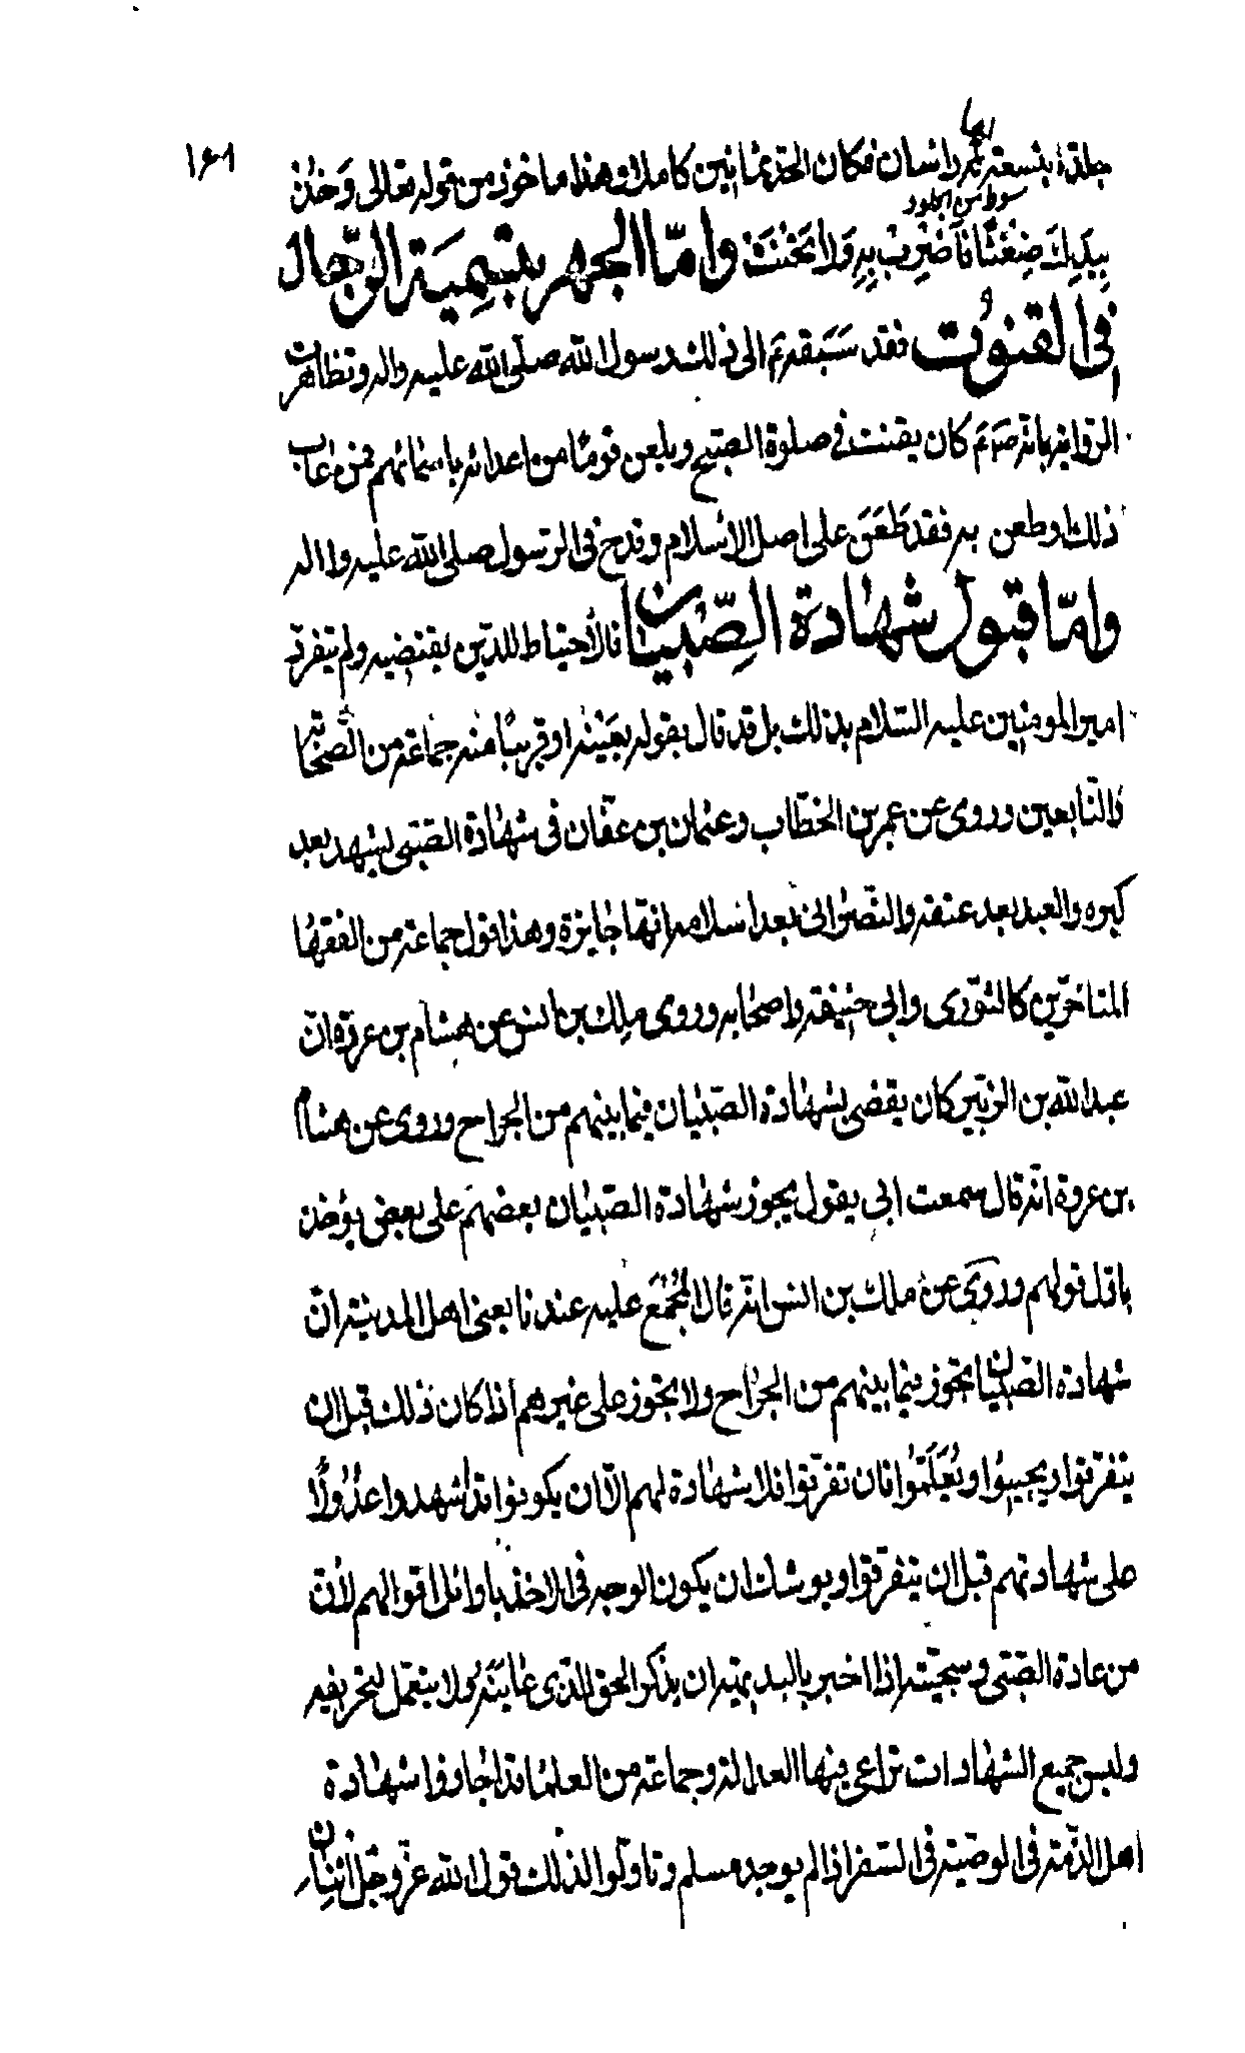 ١٤١
جلدة بنسعة لها رأسان فكان الحد ثمانين كاملة وهذا ماخوذ من قوله تعالى وَخُذْ
سوط من الجلود
بِيَدِكَ ضِغْثًا فَاضْرِبْ بِهِ وَلا تَحْنَثْ وامّا الجهر بتسمية الرّجال
في القنوت فقد سَبَقَهُم الى ذلك رسول الله صلّى الله عليه واله وتظاهرت
الرواية بانه صلعم كان يقنت في صلوة الصّبح ويلعن قومًا من اعدائه باسمائهم فمن عاب
ذلك او طعن به فقد طَعَنَ على اصل الاسلام وقدح في الرّسول صلى الله عليه واله
وامّا قبول شهادة الصّبيان فالاحتياط للدّين يقتضيه ولم يتفرّد
امير المومنين عليه السّلام بذلك بل قد قال بقوله بعَيْنه او قريبًا منه جماعة من الصّحابة
والتّابعين وروى عن عمر بن الخطّاب وعثمان بن عفّان في شهادة الصّبّى يشهد بعد
كبره والعبد بعد عتقه والنّصرانى بعد اسلامه انّها جايزة وهذا قول جماعة من الفقها
المتاخرّين كالثّورى وابى حنيفة واصحابه وروى ملك بن انس عن هشام بن عروة انّ
عبد الله بن الزّبير كان يقضى بشهادة الصّبيان فيما بينهم من الجراح وروى عن هشام
بن عروة انّه قال سمعت ابى يقول يجوز شهادة الصّبيان بعضهم على بعض يؤخذ
باوّل قولهم وروى عن ملك بن انس انّه قال المُجْمَع عليه عندنا يعنى اهل المدينة انّ
شهادة الصّبيان تجوز فيما بينهم من الجراح ولا تجوز على غيرهم اذا كان ذلك قبل ان
يتفرّقوا ويجيبوا ويُعَلَّمُوا فان تفرّقوا فلا شهادة لهم الّا ان يكونوا قد اشهدوا عدُولًا
على شهادتهم قبل ان يتفرّقوا ويوشك ان يكون الوجه في الاخذ باوائل اقوالهم لانّ
من عادة الصّبّى وسجيّته اذا اخبر بالبديهة ان يذكر الحق الّذى عايَنَه ولا يتعمّل لتحريفه
وليس جميع الشهادات تراعى فيها العدالة وجماعة من العلما قد اجازوا شهادة
اهل الذّمّة في الوصيّة في السّفر اذا لم يوجد مسلم وتاوّلوا لذلك قول الله عزّ وجلّ اثنان